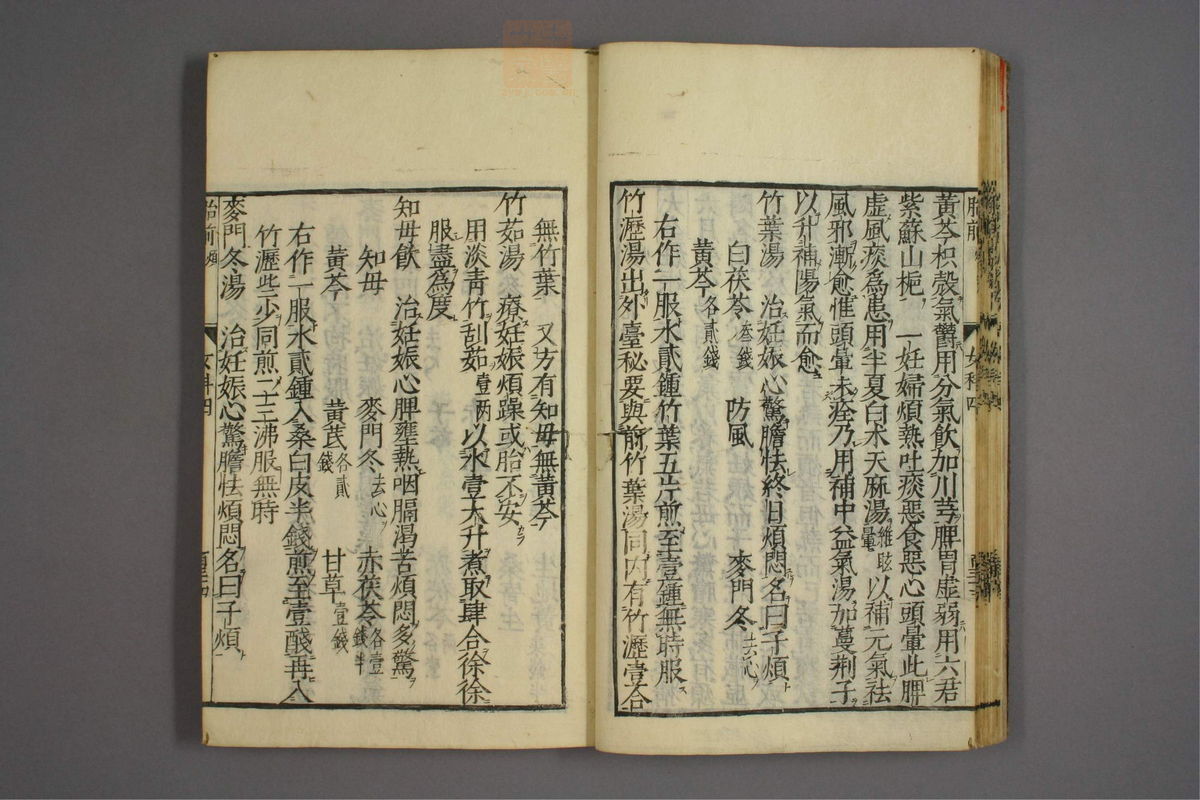 黃芩枳殼氣鬱用分氣飲加川芎脾胃虛弱用六君
紫蘇山梔 一妊婦煩熱吐痰惡食惡心頭暈此脾
虛風痰爲患用半夏白朮天麻湯以補元氣祛
風邪漸愈惟頭暈未痊乃用補中益氣湯加蔓荆子
以升補陽氣而愈
竹葉湯 治妊娠心驚膽怯終日煩悶名曰子煩
白茯苓叁錢 防風 麥門冬去心
黃芩各貳錢
右作一服水貳鍾竹葉五片煎至壹鍾無時服
竹瀝湯出外臺秘要與前竹葉湯同內有竹瀝壹合
無竹葉 又方有知母無黃芩
竹茹湯 療妊娠煩躁或胎不安
用淡靑竹刮茹壹兩以水壹大升煮取肆合徐徐
服盡爲度
知母飲 治妊娠心脾壅熱咽膈渴苦煩悶多驚
知母 麥門冬去心 赤茯苓各壹錢半
黃芩 黃芪各貳錢 甘草壹錢
右作一服水貳鍾入桑白皮半錢煎至壹醆再入
竹瀝些少同煎二三沸服無時
麥門冬湯 治妊娠心驚膽怯煩悶名曰子煩
胎前 女科四